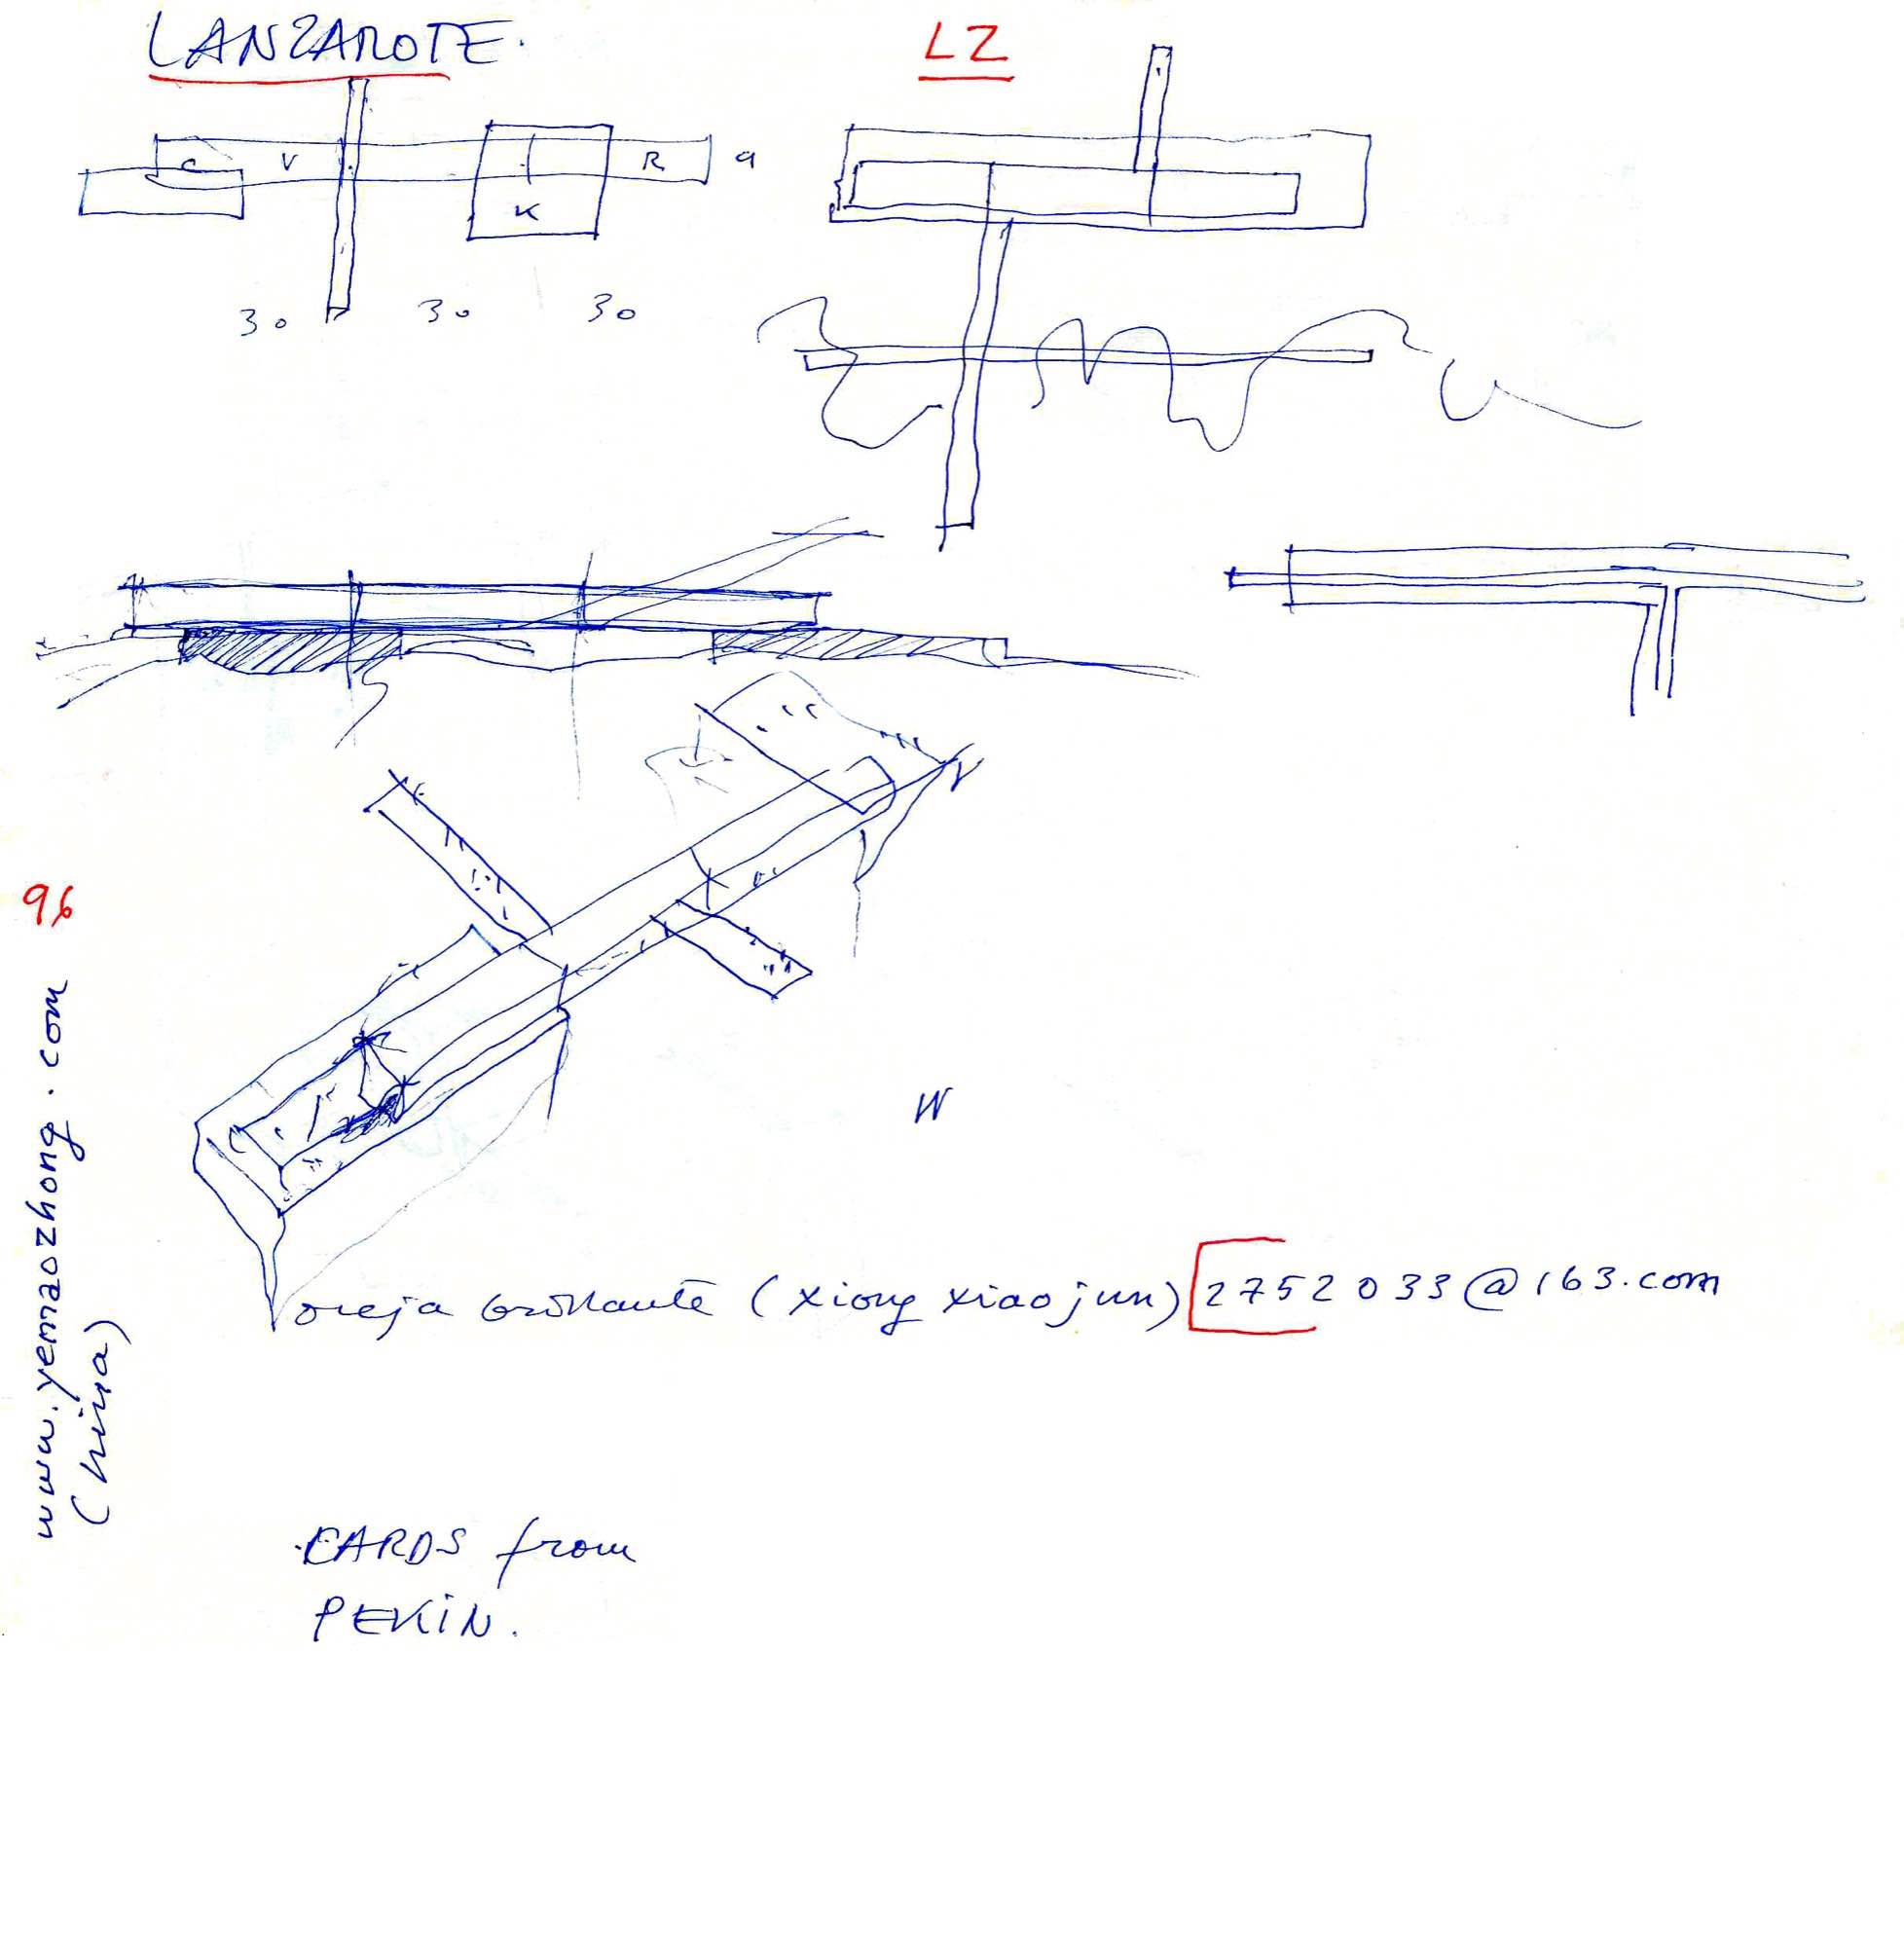 LANZAROTE.
LZ
C V R 9
K
30 30 30
96
www.yemaozhong.com
(hina)
W
oreja brillante (xiong xiao jun) [2752033@163.com
CARDS from
PEKIN.